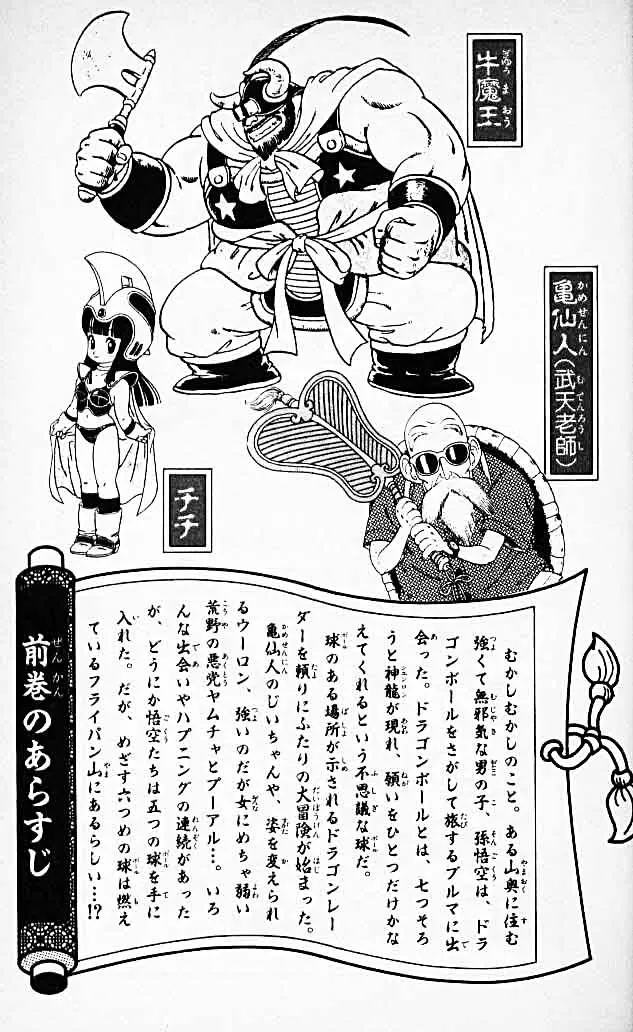 牛魔王
亀仙人(武天老師)
チチ
前巻のあらすじ
むかしむかしのこと。ある山奥に住む
強くて無邪気な男の子、孫悟空は、ドラ
ゴンボールをさがして旅するブルマに出
会った。ドラゴンボールとは、七つそろ
うと神龍が現れ、願いをひとつだけかな
えてくれるという不思議な球だ。
球のある場所が示されるドラゴンレー
ダーを頼りにふたりの大冒険が始まった。
亀仙人のじいちゃんや、姿を変えられ
るウーロン、強いのだが女にめちゃ弱い
荒野の悪党ヤムチャとプーアル…。いろ
んな出会いやハプニングの連続があった
が、どうにか悟空たちは五つの球を手に
入れた。だが、めざす六つめの球は燃え
ているフライパン山にあるらしい…!?